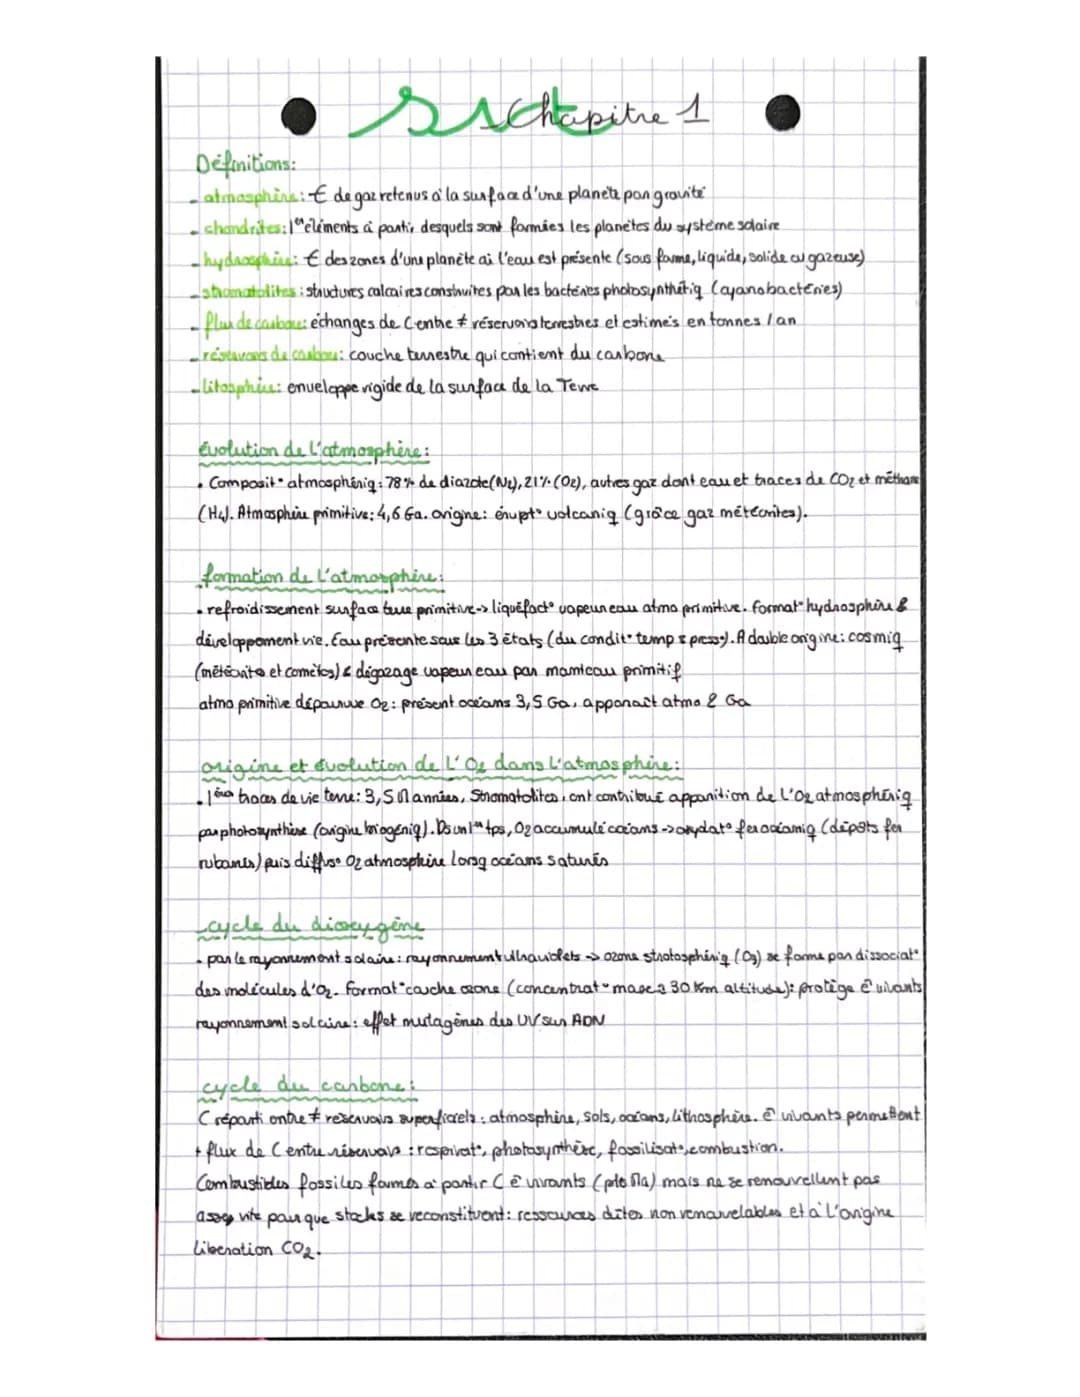 svt Chapitre 1
Définitions:
- atmosphère: € de gaz retenus à la surface d'une planète par gravité
- chondrites: 1ers éléments à partir desquels sont formées les planètes du système solaire
- hydrosphère: € des zones d'une planète où l'eau est présente (sous forme, liquide, solide ou gazeuse)
- stromatolites: structures calcaires construites par les bactéries photosynthétiq (cyanobactéries)
- flux de carbone: échanges de C entre ≠ réservoirs terrestres et estimés en tonnes / an
- réservoirs de carbone: couche terrestre qui contient du carbone
- litosphère: enveloppe rigide de la surface de la Terre
évolution de l'atmosphère:
• Composit° atmosphériq: 78% de diazote (N2), 21% (O2), autres gaz dont eau et traces de CO2 et méthane
(H4). Atmosphère primitive: 4,6 Ga. origine: érupt° volcaniq (grâce gaz météorites).
formation de l'atmosphère:
• refroidissement surface terre primitive -> liquéfact° vapeur eau atmo primitive. format° hydrosphère &
développement vie. Eau présente sous les 3 états (du condit° temp & press°). A double origine: cosmiq
(météorite et comètes) & dégazage vapeur eau par manteau primitif
atmo primitive dépourvue O2: présent océans 3,5 Ga, apparaît atmo 2 Ga
origine et évolution de l'O2 dans l'atmosphère:
• 1ères traces de vie terre: 3,5 M années, Stromatolites, ont contribué apparition de l'O2 atmosphériq
par photosynthèse (origine biogéniq). Ds un 1er tps, O2 accumulé océans -> oxydat° fer océaniq (dépôts fer
rubanés) puis diffuse O2 atmosphère lorsq océans saturés
cycle du dioxygène
• par le rayonnement solaire: rayonnement ultraviolets -> ozone stratosphériq (O3) se forme par dissociat°
des molécules d'O2. format° couche ozone (concentrat° max à 30 Km altitude): protège ê vivants
rayonnement solaire: effet mutagènes des UV sur ADN
cycle du carbone:
C réparti entre ≠ réservoirs superficiels: atmosphère, sols, océans, lithosphère. ê vivants permettent
+ flux de C entre réservoirs: respirat°, photosynthèse, fossilisat°, combustion.
Combustibles fossiles formés à partir C ê vivants (plrs Ma) mais ne se renouvellent pas
assez vite pour que stocks se reconstituent: ressources dites non renouvelables et à l'origine
libération CO2.